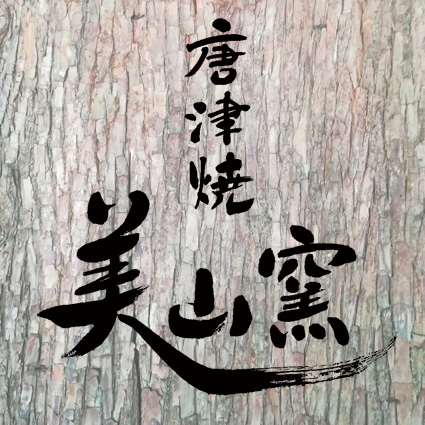 唐津焼
美山窯